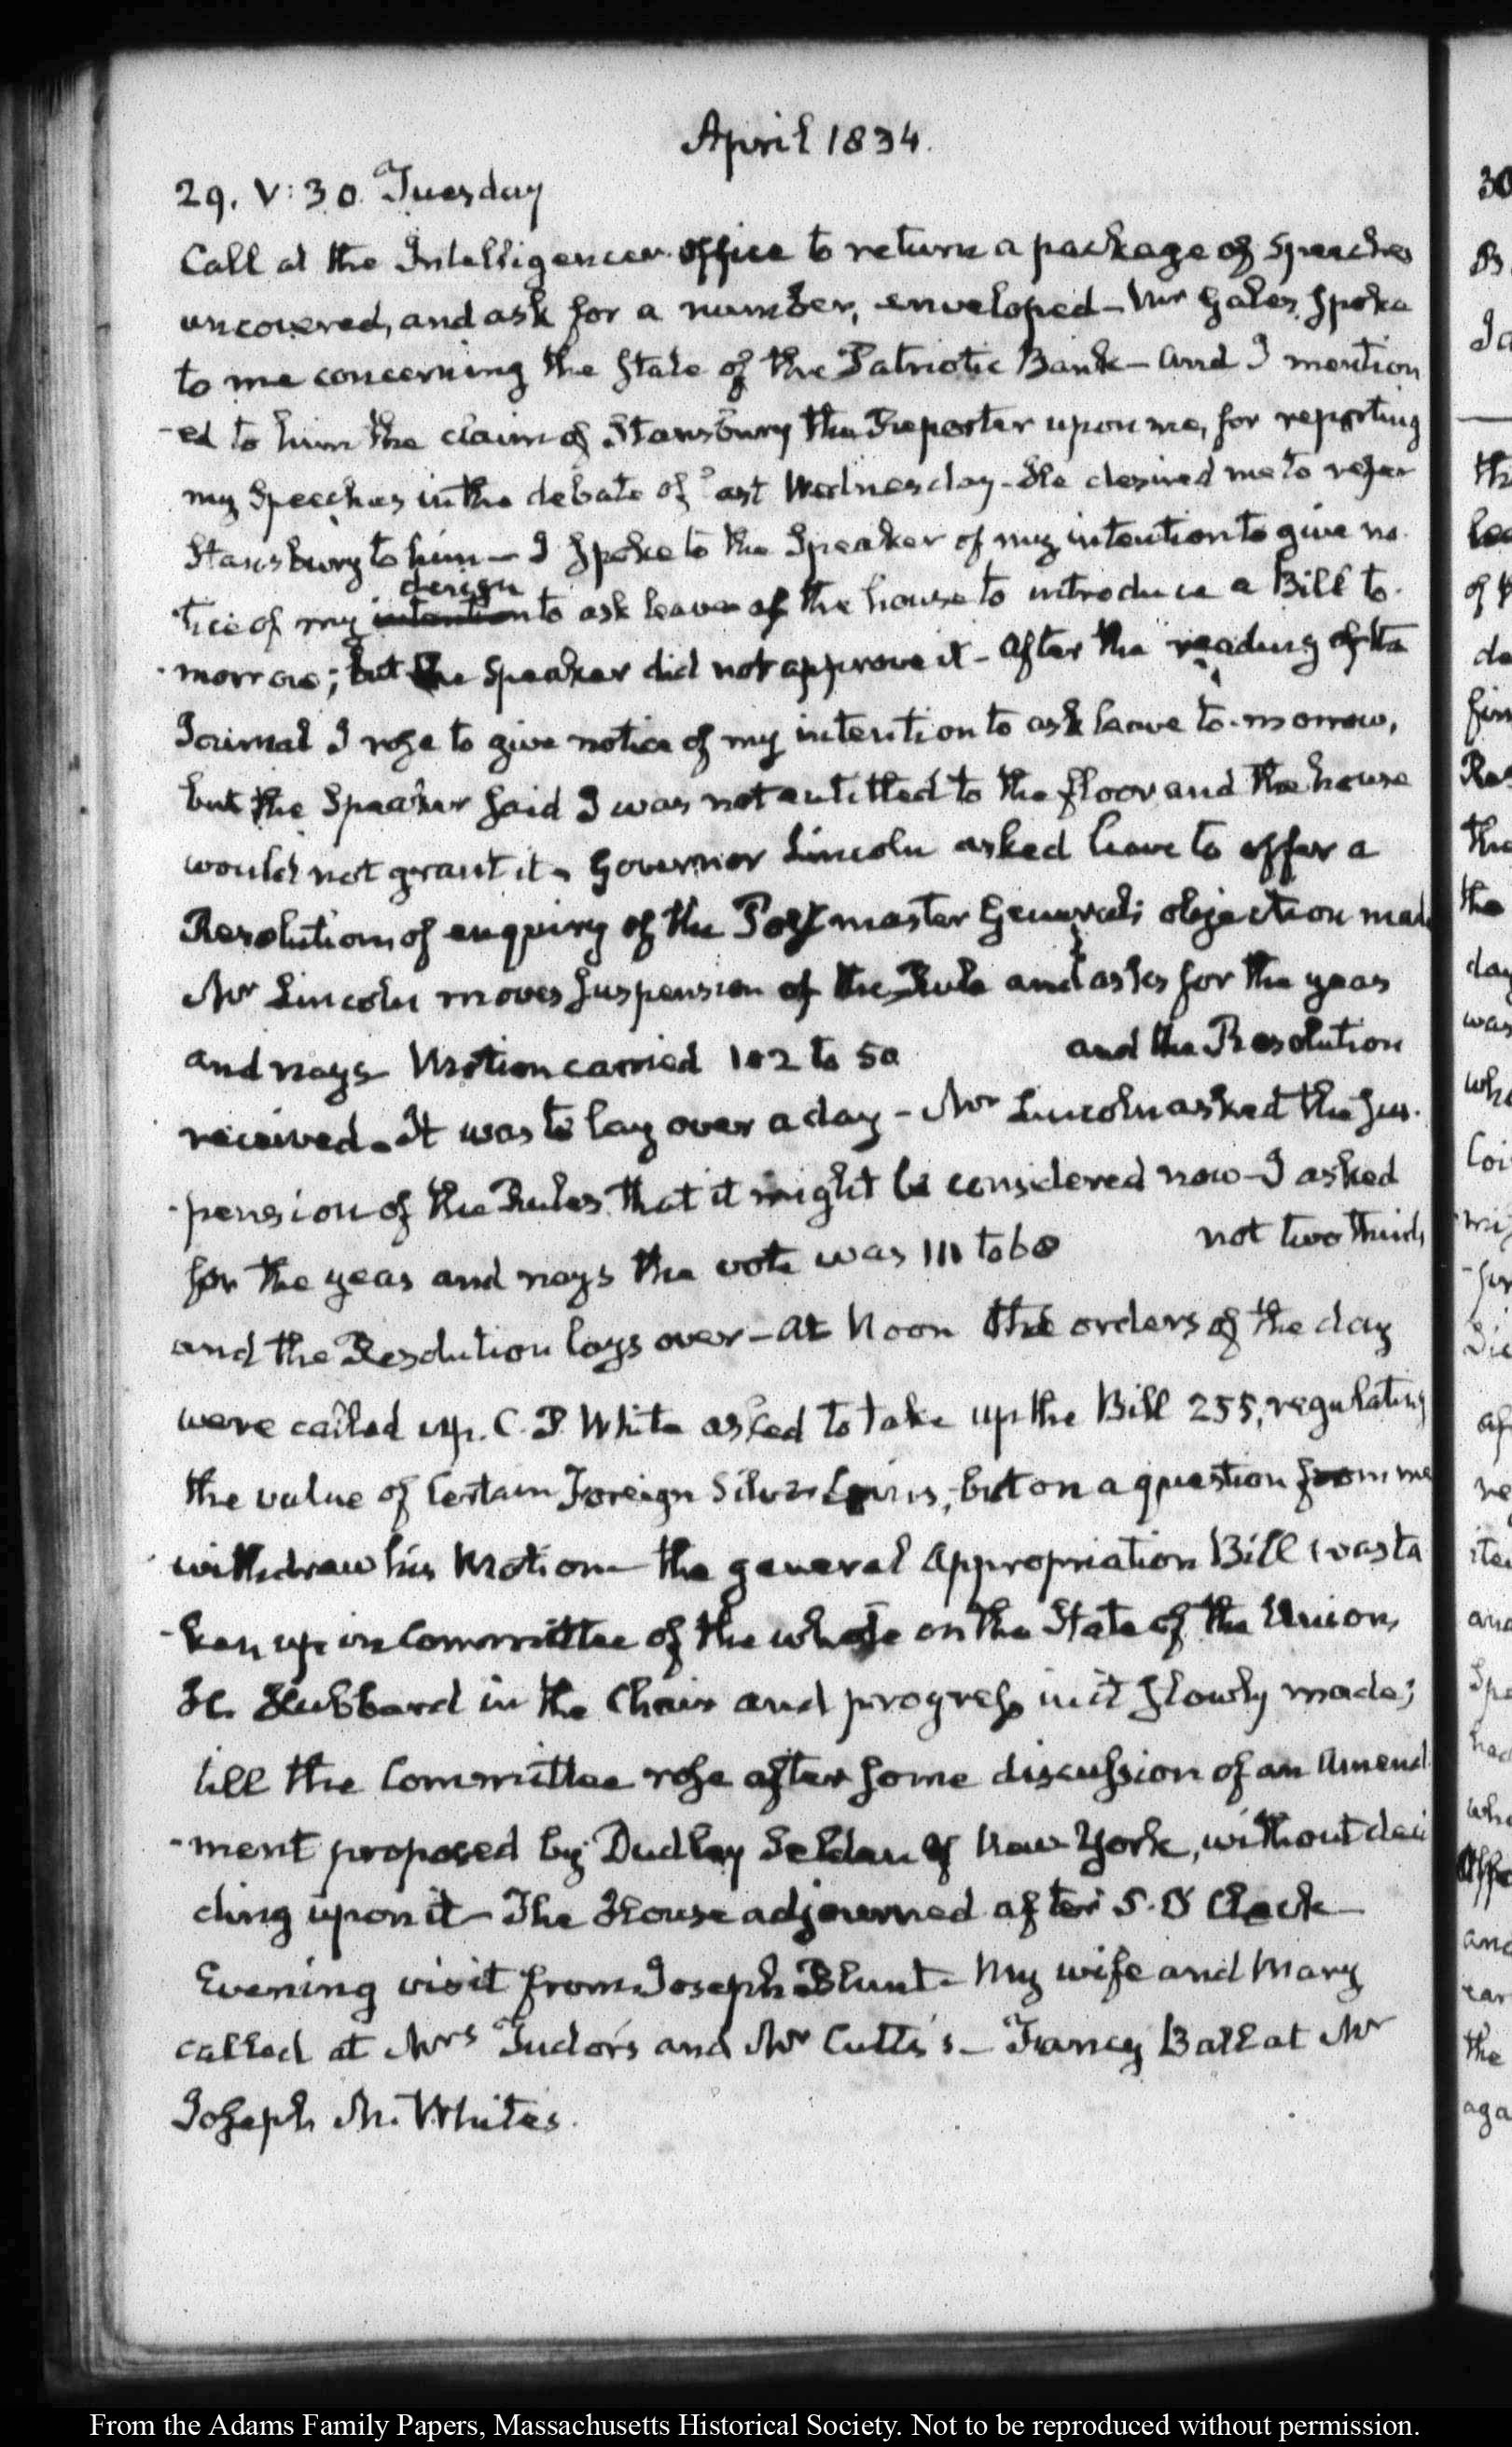 April 1834.
29. V:30. Tuesday
Call at the Intelligencer office to return a package of Speeches
uncovered, and ask for a number, enveloped – Mr Gales spoke
to me concerning the State of the Patriotic Bank – and I mention
-ed to him the claim of Stansbury the Reporter upon me, for reporting
my Speeches in the debate of last Wednesday – He desired me to refer
Stansbury to him – I spoke to the Speaker of my intention to give no-
design
tice of my intention to ask leave of the house to introduce a Bill to-
-morrow; but the Speaker did not approve it – After the reading of the
Journal I rose to give notice of my intention to ask leave to-morrow,
but the Speaker said I was not entitled to the floor and the house
would not grant it – Governor Lincoln asked leave to offer a
Resolution of enquiry of the Post master General; objection made
Mr Lincoln moves suspension of the Rule and asks for the yeas
and nays – Motion carried 102 to 50 and the Resolution
received – It was to lay over a day – Mr Lincoln asked the sus-
-pension of the Rules that it might be considered now – I asked
for the yeas and nays the vote was 111 to 60 not two thirds
and the Resolution lays over – At Noon the orders of the day
were called up. C. P. White asked to take up the Bill 255, regulating
the value of Certain Foreign Silver Coins, but on a question from me
withdrew his Motion – the general Appropriation Bill was ta
-ken up in Committee of the whole on the State of the Union,
H. Hubbard in the Chair and progress in it slowly made;
till the Committee rose after some discussion of an Amend
-ment proposed by Dudley Selden of New York, without deci
ding upon it – The House adjourned after 5. O'Clock –
Evening visit from Joseph Blunt – My wife and Mary
called at Mrs Tudor's and Mr Cutts's – Fancy Ball at Mr
Joseph M. White's.
From the Adams Family Papers, Massachusetts Historical Society. Not to be reproduced without permission.